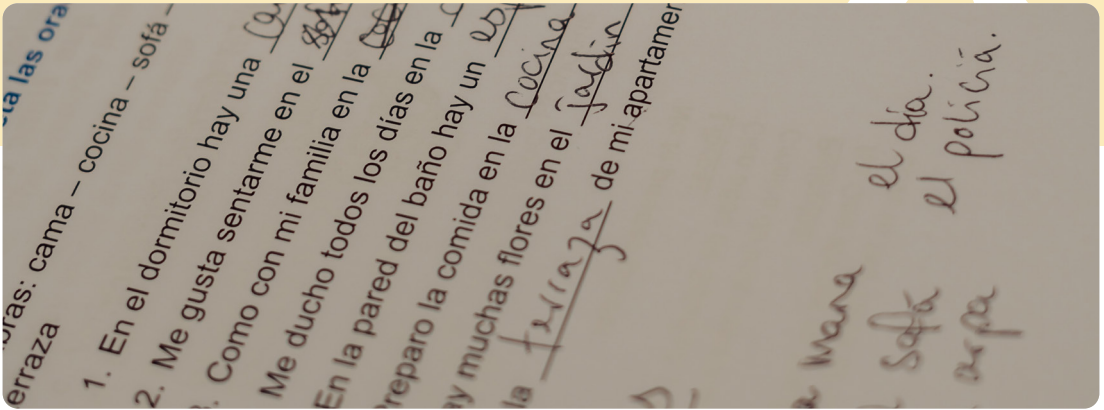 las ora
cama – cocina – sofá –
erraza
1. En el dormitorio hay una
2. Me gusta sentarme en el sof
Como con mi familia en la
Me ducho todos los días en la
En la pared del baño hay un es
Preparo la comida en la cocina
ay muchas flores en el jardín
la terraza de mi apartamen
mana el día.
sofá el policía.
arpa